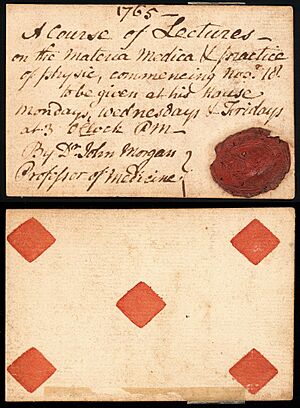 1765 —
A Course of Lectures —
on the Materia Medica & practice
of physic, commencing Nov.r 18th
to be given at his house
Mondays, Wednesdays & Fridays
at 3 o'Clock P.M. —
By Dr. John Morgan
Professor of Medicine